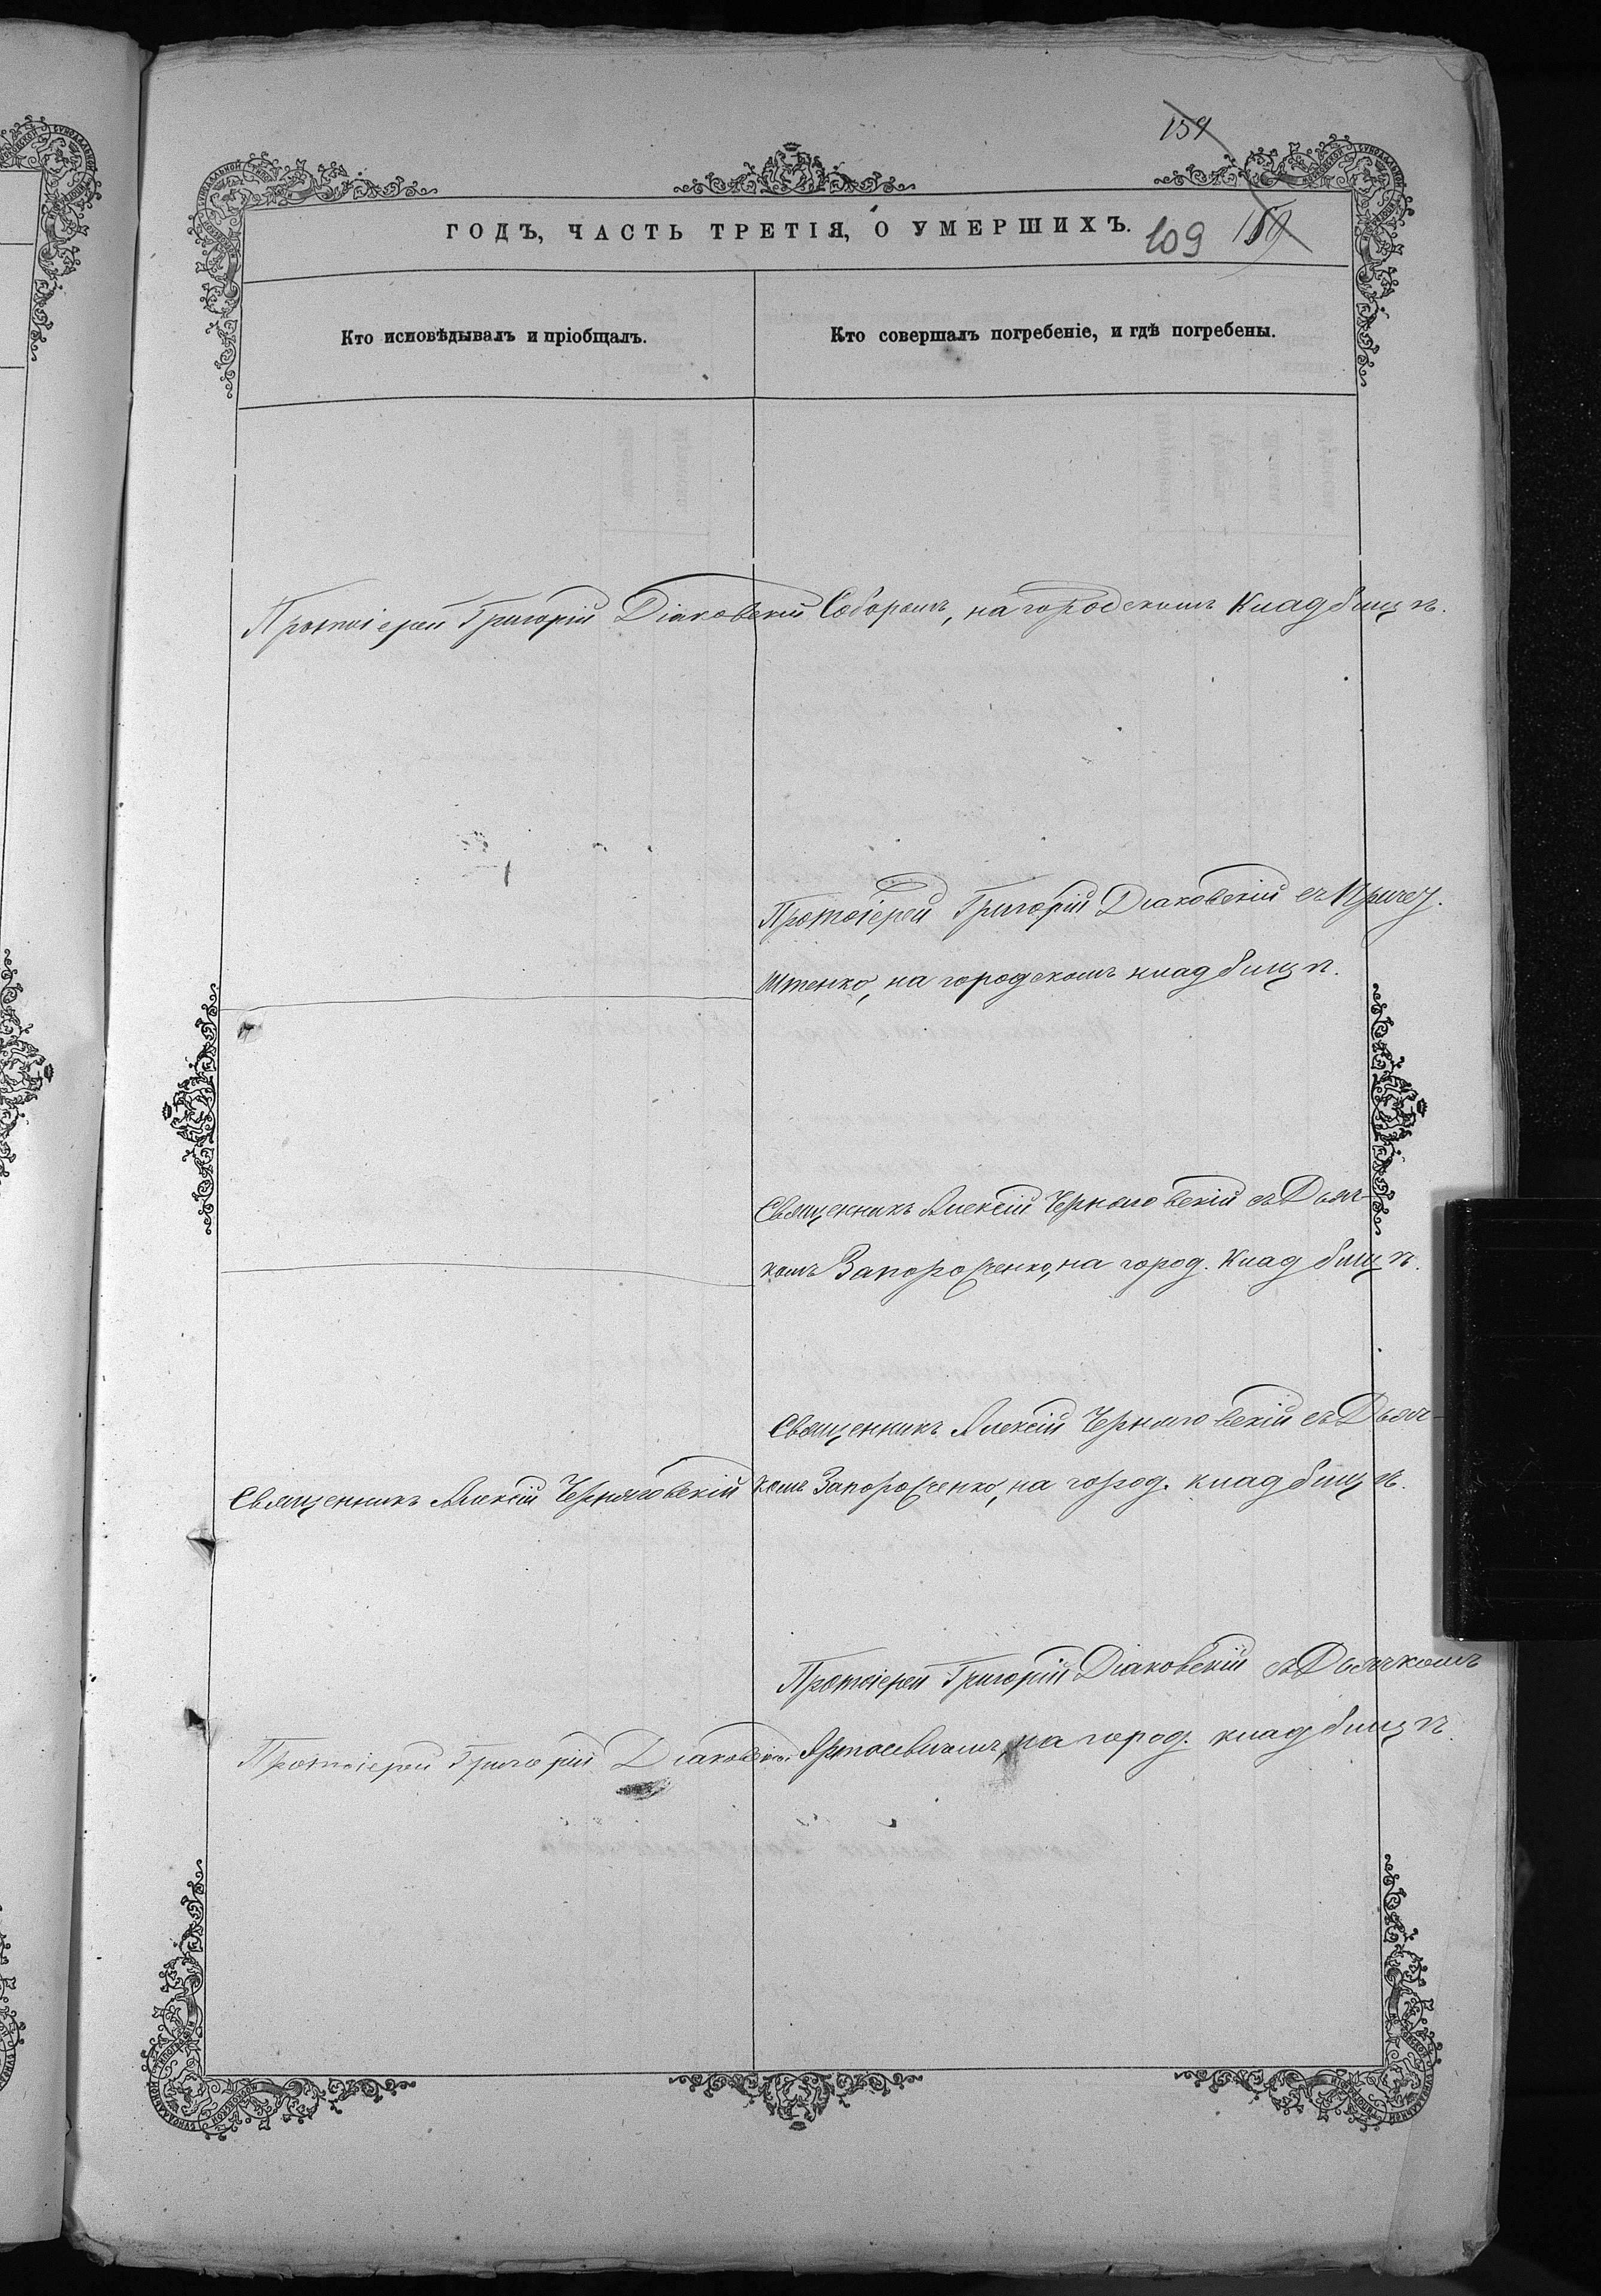 159
ГОДЪ, ЧАСТЬ ТРЕТІЯ, О УМЕРШИХЪ.
109 159
Кто исповѣдывалъ и пріобщалъ.
Кто совершалъ погребеніе, и гдѣ погребены.
Протоіерей Григорій Діаковскій
Соборомъ, на городскомъ кладбищѣ.
Протоіерей Григорій Діаковскій съ Причет.
Штенко, на городскомъ кладбищѣ.
Священникъ Алексій Черняговскій съ Дьяч-
комъ Запорозченко, на город. кладбищѣ.
Священникъ Алексій Черняговскій
Священникъ Алексій Черняговскій съ Дьяч-
комъ Запорозченко, на город. кладбищѣ.
Протоіерей Григорій Діаковскій
Протоіерей Григорій Діаковскій съ Дьячкомъ
на город. кладбищѣ.